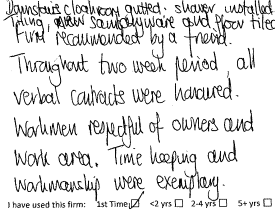 Downstairs cloakroom gutted. shower installed
Tiling, new sanitaryware and floor tiled
Firm recommended by a friend.
Throughout two week period, all
verbal contracts were honoured.
Workmen respectful of owners and
work area. Time keeping and
workmanship were exemplary.
I have used this firm: 1st Time <2 yrs 2-4 yrs 5+ yrs